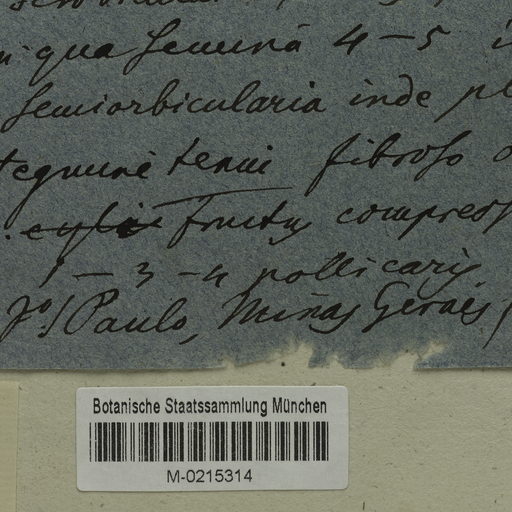 qua semina 4 – 5
semiorbicularia inde
tegmine tenui fibroso
fructus compress
1 – 3 – 4 pollicaris
S. Paulo, Minas Geraës
Botanische Staatssammlung München
M-0215314